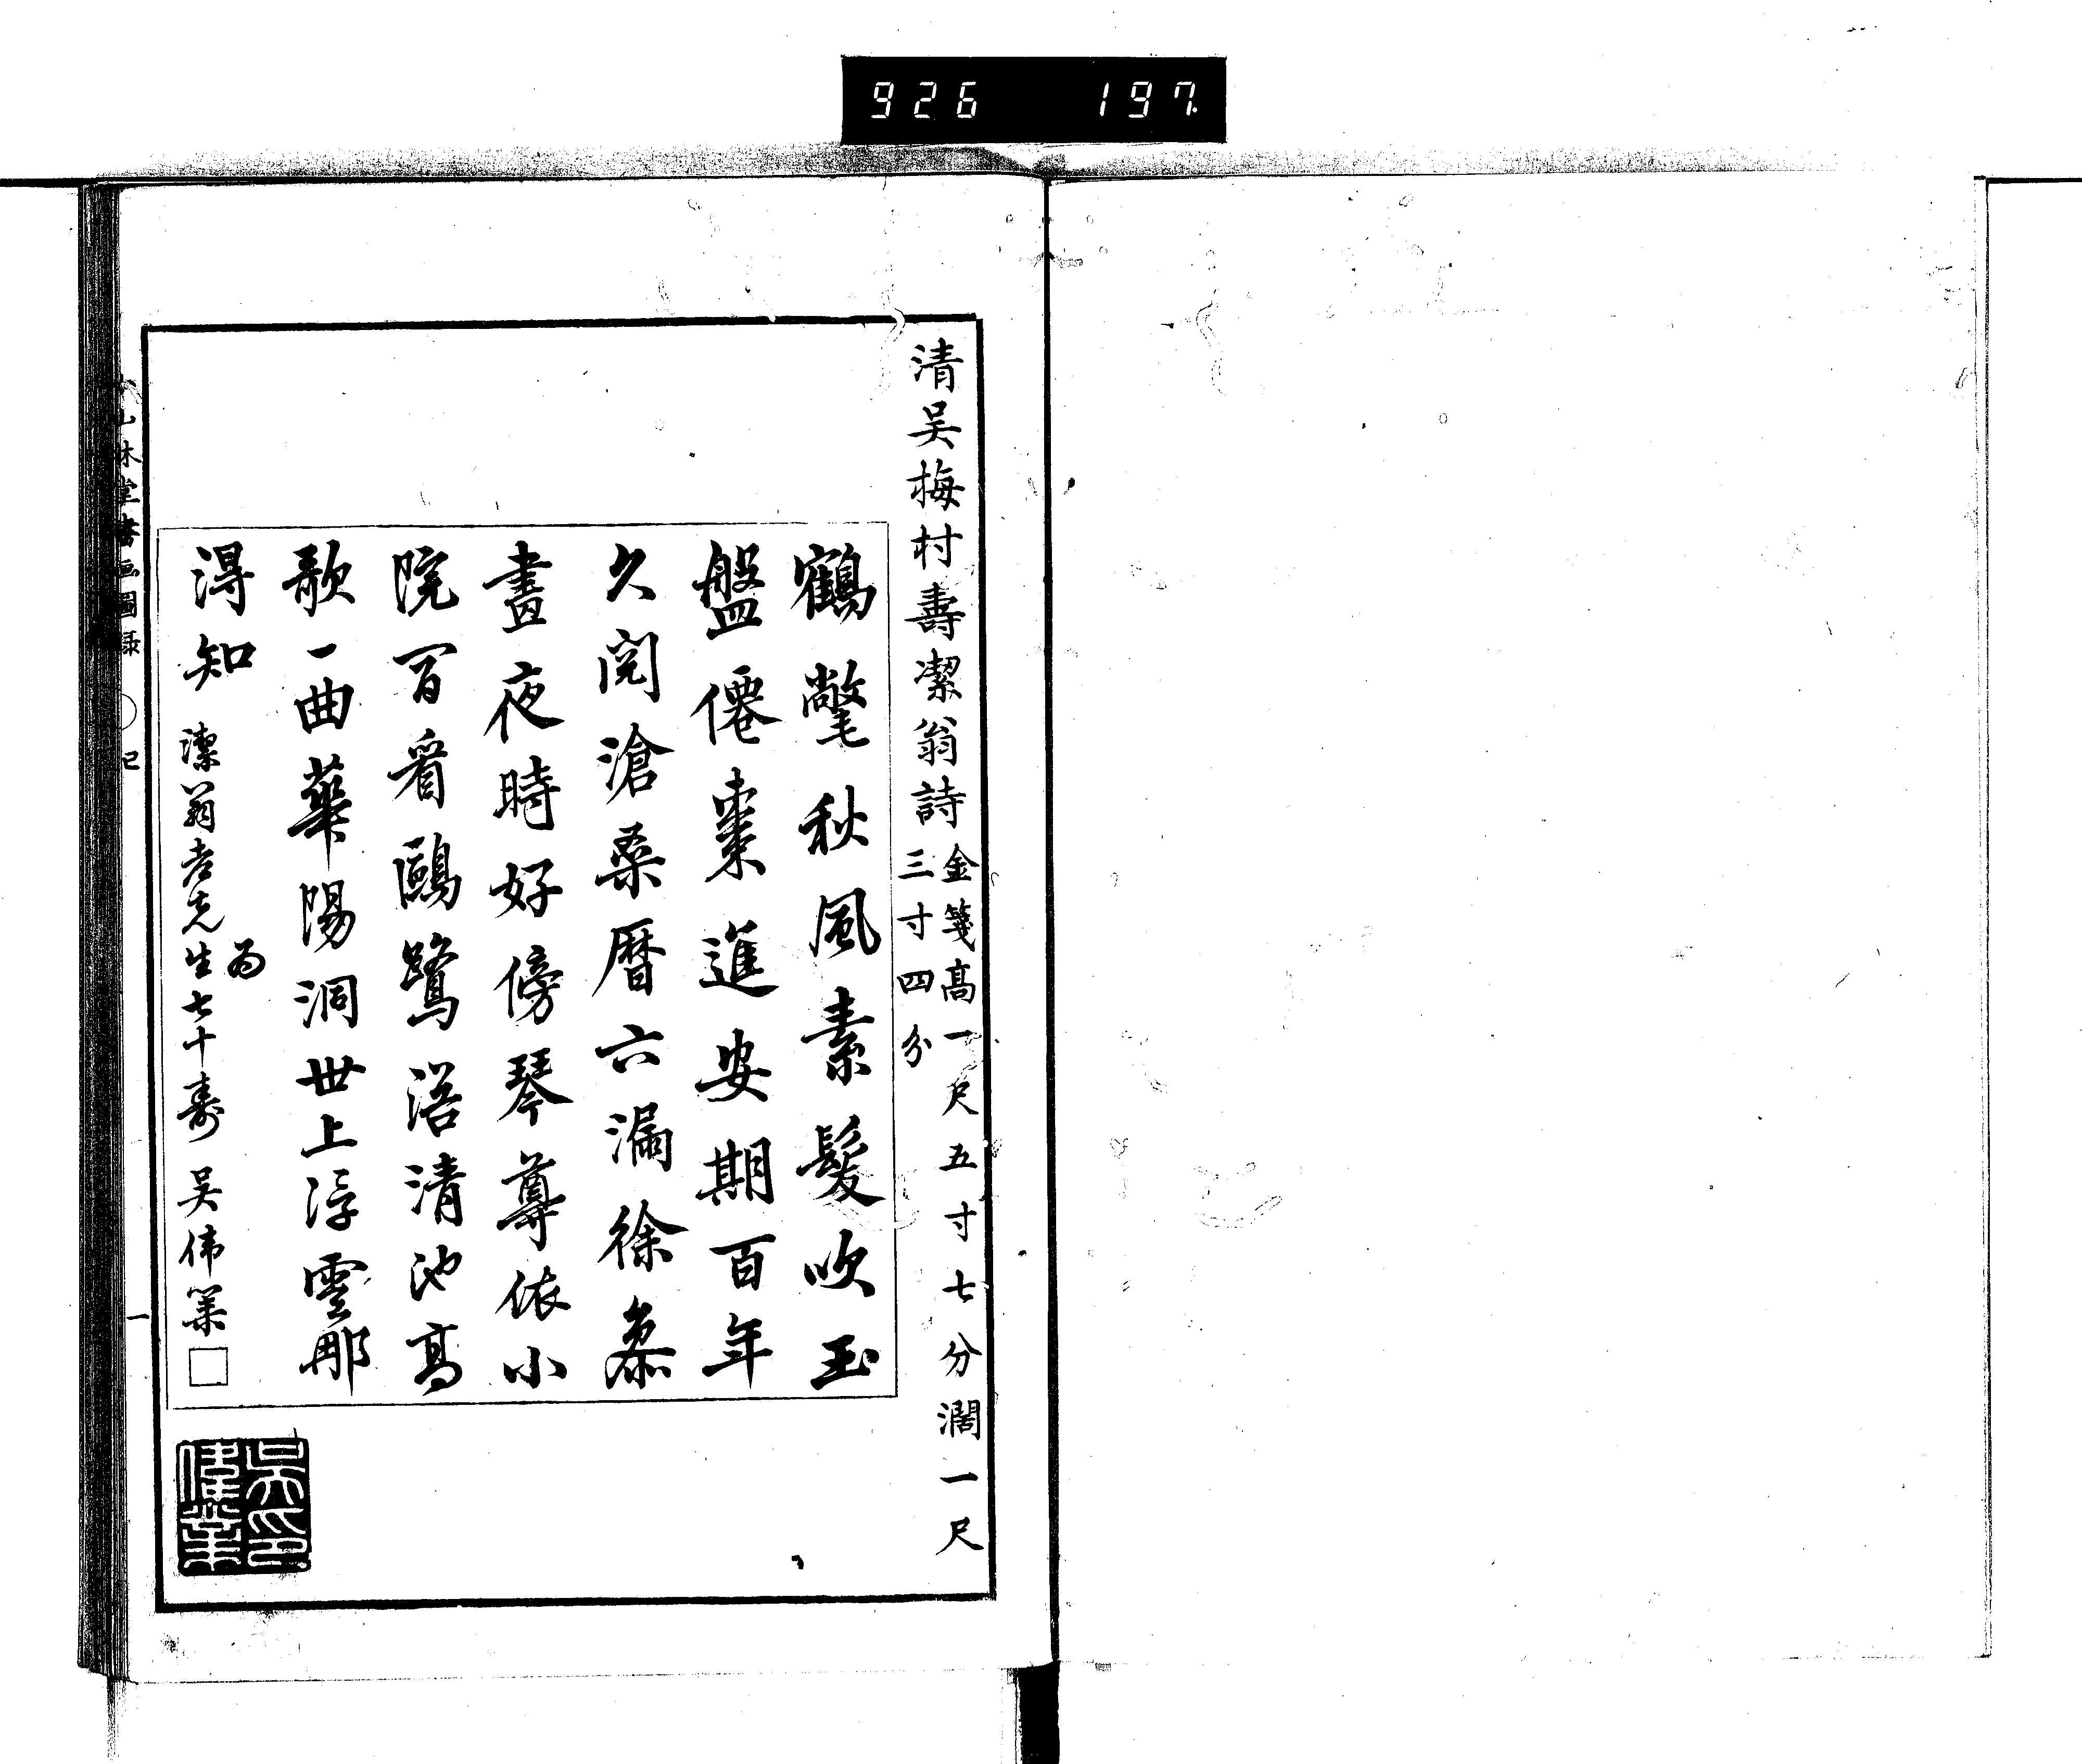 926 197
清吴梅村壽潔翁詩
金箋高一尺五寸七分濶一尺
三寸四分
鶴氅秋風素髮吹玉
盤僊棗進安期百年
久閲滄桑曆六漏徐
晝夜時好傍琴尊依小
院百看鷗鷺浴清池高
歌一曲華陽洞世上浮雲那
得知
為
潔翁老先生七十壽 吴偉業
吴偉業印
山林堂書画圖录 己
一